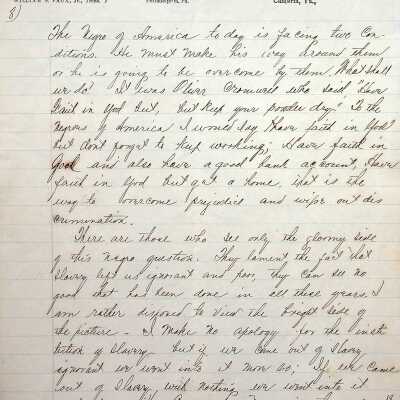 WILLIAM S. VAUX, JR.,
Philadelphia, Pa.
8)
The Negro of America to day is facing two Con
ditions. He must make his way around them
or he is going to be overcome by them. What shall
we do? It was Oliver Cromwell who said "Have
Faith in God but, but keep your powder dry." To the
Negroes of America I would say "have faith in God"
but dont forget to keep working; Have faith in
God and also have a good bank account, Have
faith in God but get a home, that is the
way to overcome prejudice and wipe out dis
crimination.
There are those who see only the gloomy side
of this Negro question. They lament the fact that
Slavery left us ignorant and poor, they can see no
good that has been done in all these years. I
am rather disposed to view the bright side of
the picture - I make no apology for the insti
tution of Slavery. but if we came out of Slavery
ignorant we went into it more so; If we came
out of Slavery with nothing we went into it